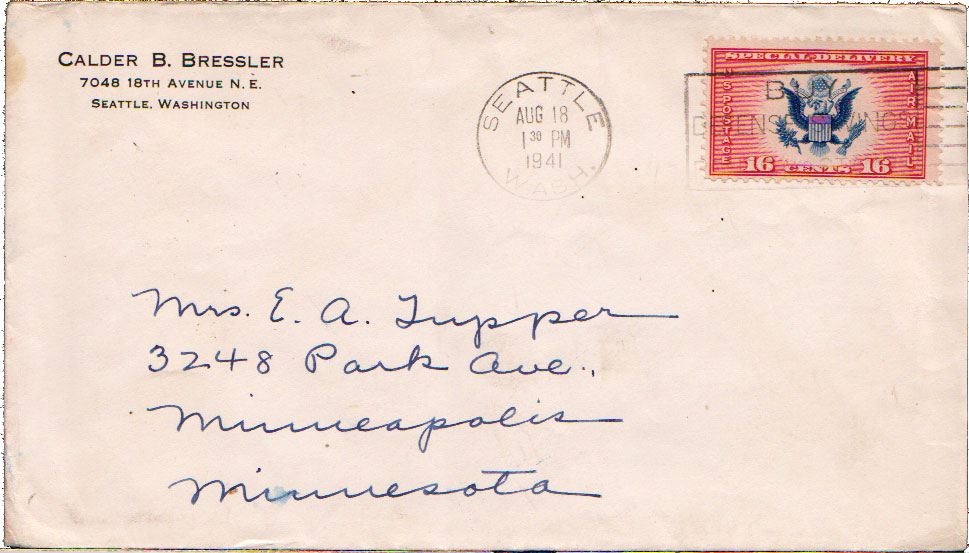 CALDER B. BRESSLER
7048 18TH AVENUE N. E.
SEATTLE, WASHINGTON
SEATTLE
AUG 18
1 30 PM
1941
WASH.
SPECIAL DELIVERY
U S POSTAGE
AIR MAIL
16 CENTS 16
BUY
DEFENSE SAVINGS
Mrs. E. A. Tupper
3248 Park Ave.,
Minneapolis
Minnesota